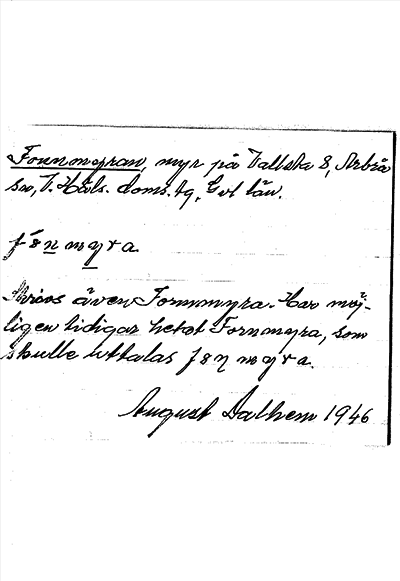 Fonnmyran, myr på Vallsta 8, Arbrå
sn, V. Häls. doms. tg, Gvl län.
fǿn myra.
Skrives även Fornmyra. Har möj-
ligen tidigare hetat Fornmyra, som
skulle uttalasføn myra.
August Dalhem 1946